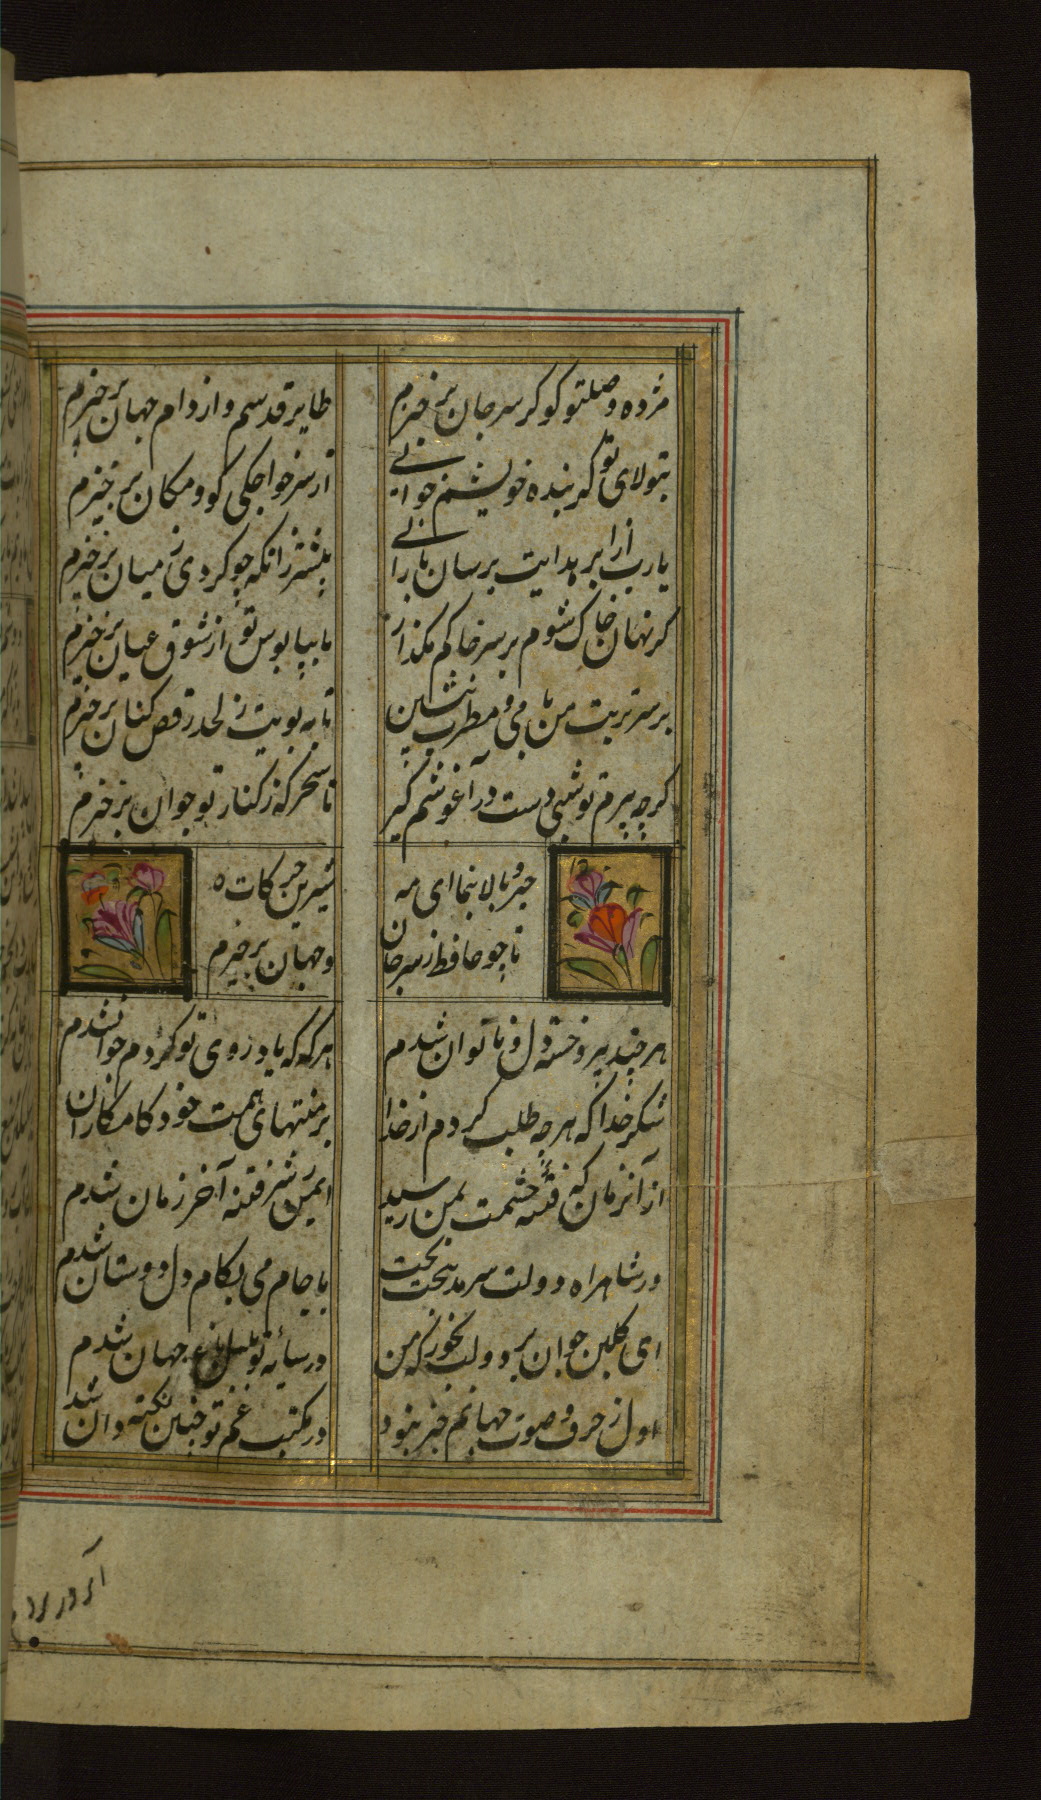 مژده وصلتو کو کز سر جان بر خیزم
طایر قدسم و از دام جهان بر خیزم
بتولای تو گر بنده خویشم خوانی
از سر خواجکی کون و مکان بر خیزم
یارب از ابر هدایت برسان بارانی
پیشتر زانکه چو کردی ز میان بر خیزم
کر نهان خاک شوم بر سر خاکم مکذار
تا بپا بوس تو از شوق عیان بر خیزم
بر سر تربت من با می و مطرب بنشین
تا به بویت ز لحد رقص کنان بر خیزم
کر چه پیرم تو شبی دست در آغوشم کیر
تا سحر که ز کنار تو جوان بر خیزم
خیز و بالا بنما ای مه
شیرین حرکات
تا چو حافظ ز سر جان
و جهان بر خیزم
هر چند پیر و خسته دل و ناتوان شدم
هر که که یاد روی تو کردم جوان شدم
شکر خدا که هر چه طلب کردم از خدا
بر منتهای همت خود کامکاران شدم
از آنزمان که فتنه چشمت بمن رسید
ایمن ز شر فتنه آخر زمان شدم
در شاهراه دولت سرمد بتخت بخت
با جام می بکام دل دوستان شدم
ای کلبن جوان بر دولت بخور که من
در سایه تو بلبل باغ جهان شدم
اول ز حرف و صوت جهانم خبر نبود
در مکتب غم تو چنین نکته دان شد